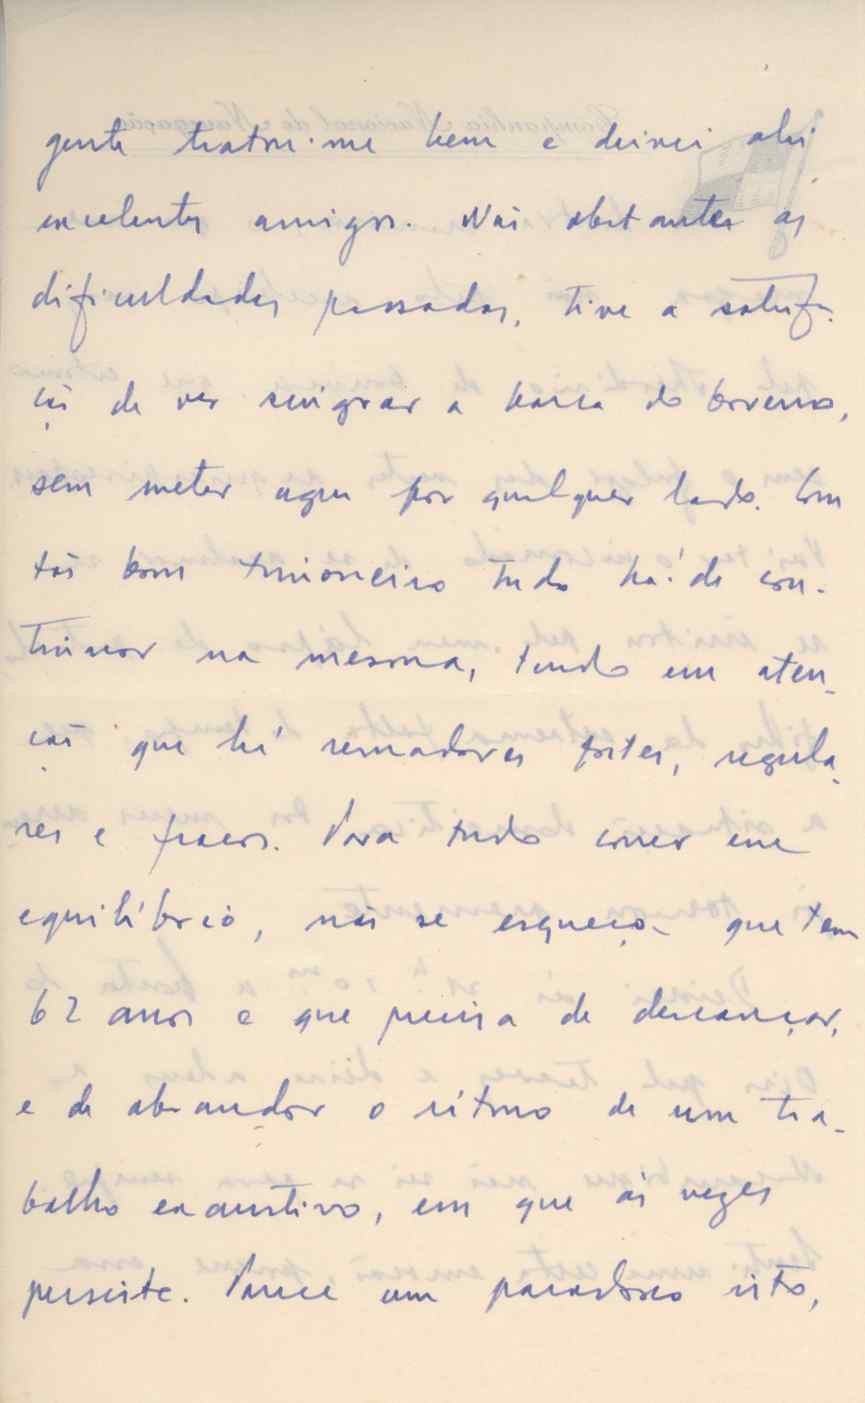 gente tratou-me bem e deixei ahi
excelentes amigos. Não obstantes as
dificuldades passadas, tive a satisfa-
ção de ver singrar a barca do Governo,
sem meter agua por qualquer lado. Com
tão bom timoneiro tudo há-de con-
tinuar na mesma, tendo em aten-
ção que há remadores fortes, regula-
res e fracos. Para tudo correr em
equilíbrio, não se esqueça que tem
62 anos e que precisa de descançar,
e de abrandar o rítmo de um tra-
balho exaustivo, em que às vezes
persiste. Parece um paradoxo isto,